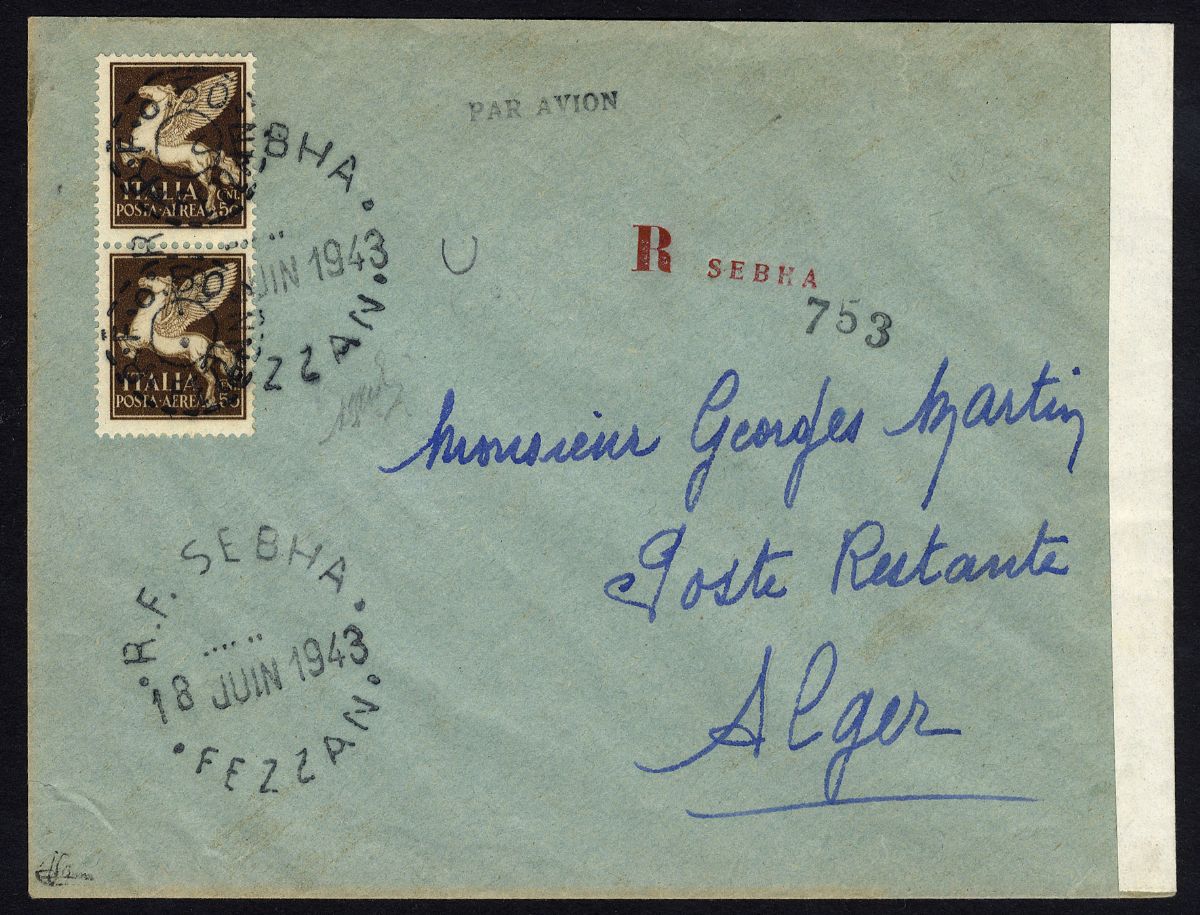 PAR AVION
ITALIA
POSTA-AEREA
ITALIA
POSTA-AEREA
SEBHA
JUIN 1943
FEZZAN
R SEBHA
753
Monsieur Georges Martin
Poste Restante
Alger
R.F. SEBHA
18 JUIN 1943
FEZZAN